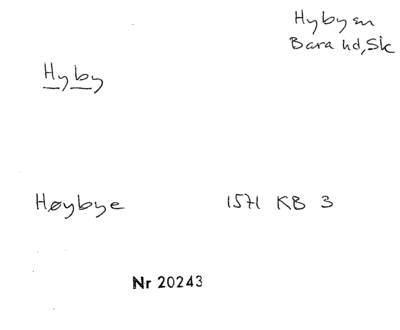 Hyby sn
Bara hd, Sk
Hyby
Høybye 1571 KB 3
Nr 20243